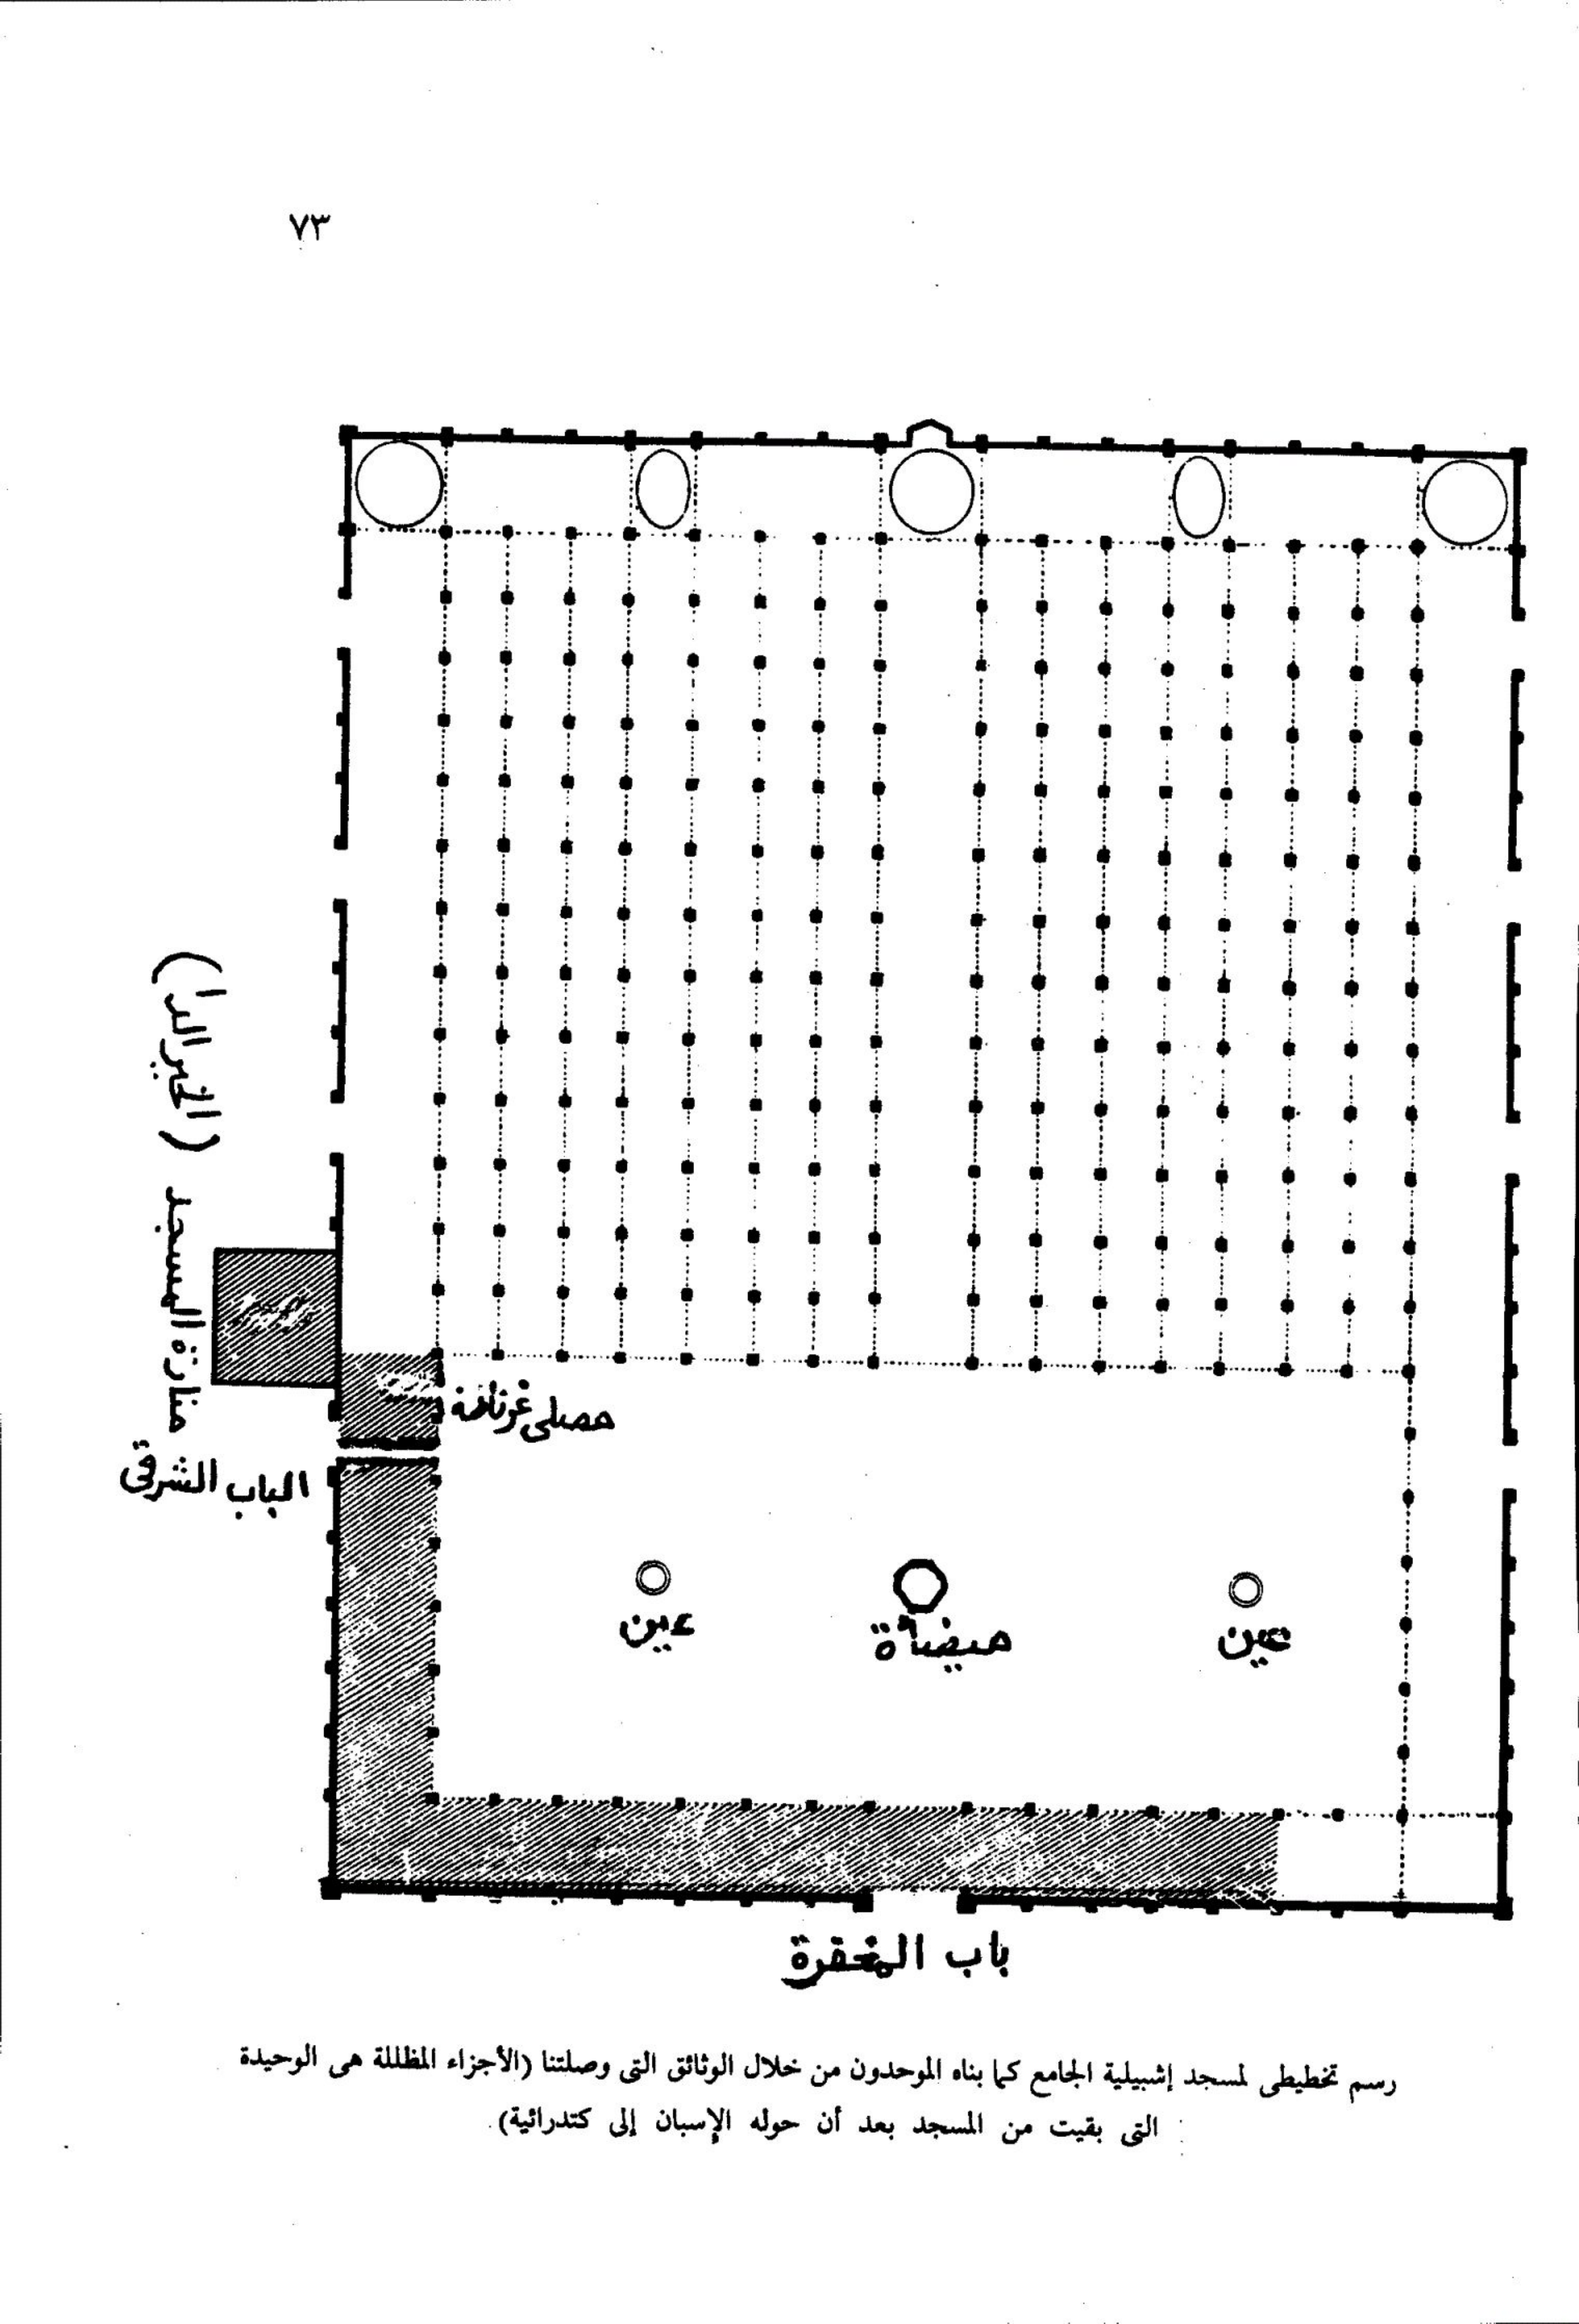 ٧٣
منارة المسجد (الخيرالدا)
مصلى غرناطة
الباب الشرقى
عين
ميضأة
عين
باب المغفرة
رسم تخطيطى لمسجد إشبيلية الجامع كما بناه الموحدون من خلال الوثائق التى وصلتنا (الأجزاء المظللة هى الوحيدة
التى بقيت من المسجد بعد أن حوله الإسبان إلى كتدرائية).